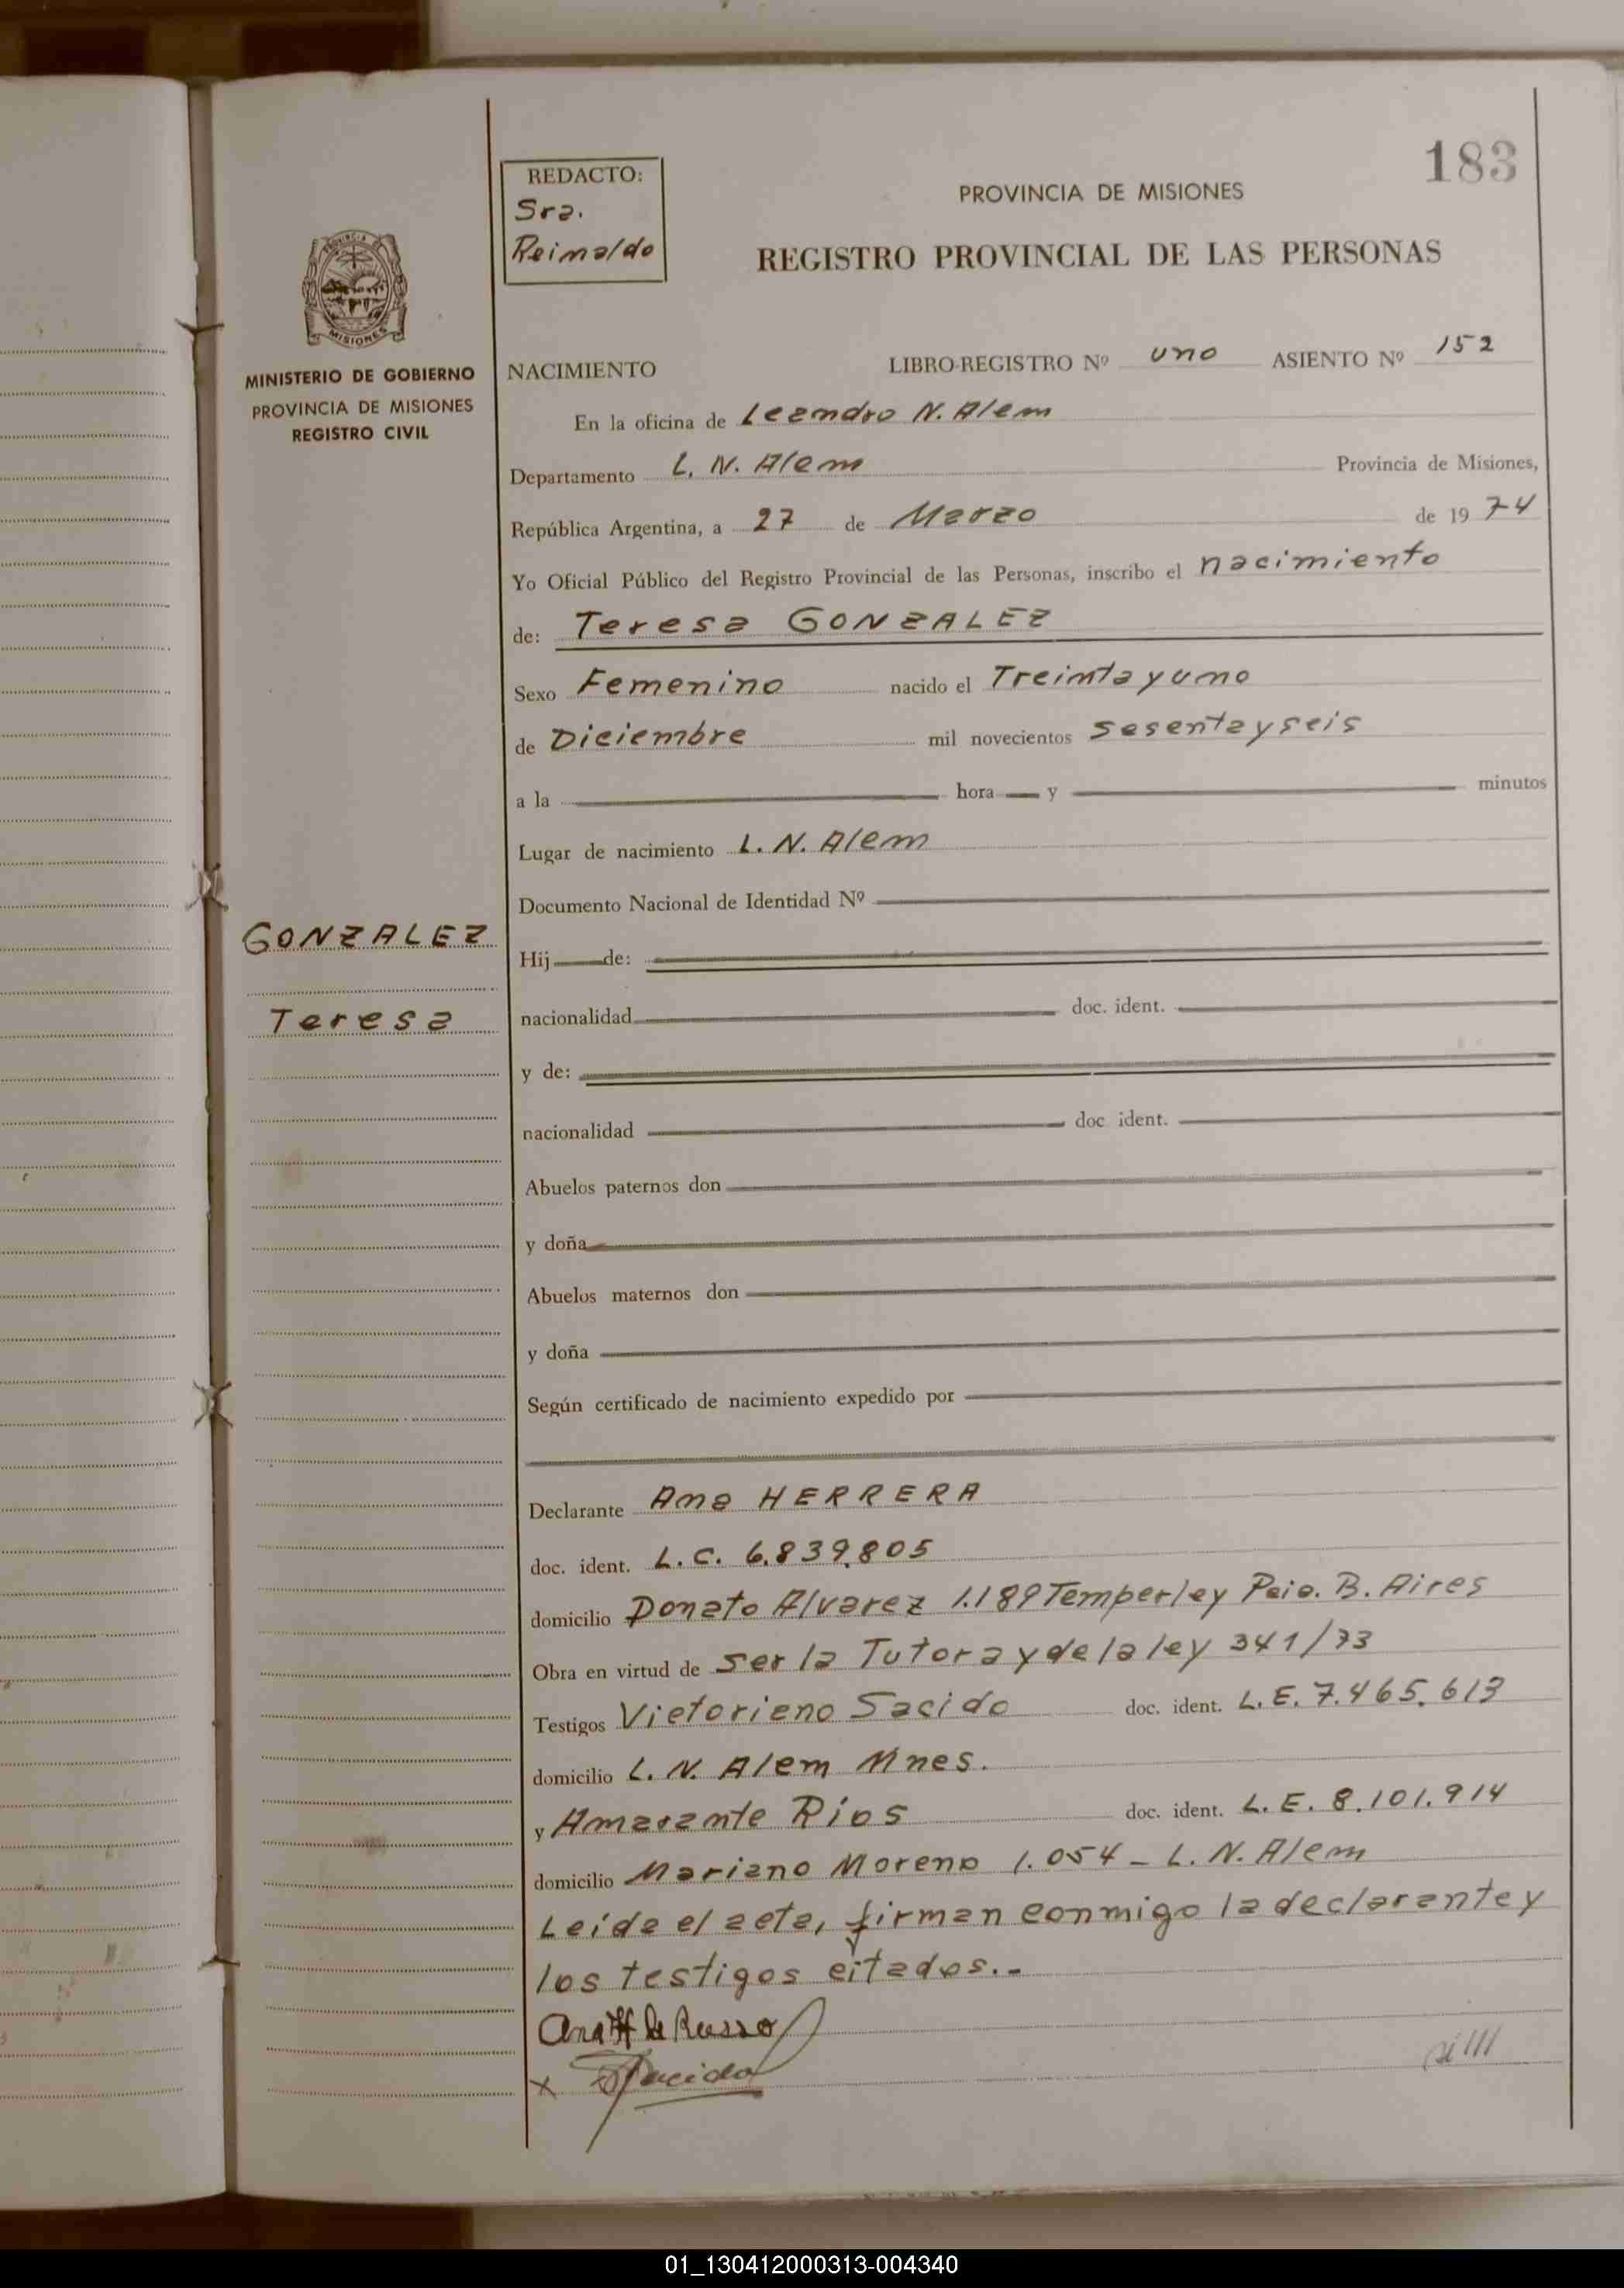 183
REDACTO:
Sra.
Reinaldo
PROVINCIA DE MISIONES
REGISTRO PROVINCIAL DE LAS PERSONAS
PROVINCIA DE
MISIONES
MINISTERIO DE GOBIERNO
PROVINCIA DE MISIONES
REGISTRO CIVIL
NACIMIENTO LIBRO-REGISTRO Nº uno ASIENTO Nº 152
En la oficina de Leandro N. Alem
Departamento L. N. Alem Provincia de Misiones,
República Argentina, a 27 de Marzo de 1974
Yo Oficial Público del Registro Provincial de las Personas, inscribo el nacimiento
de: Teresa GONZALEZ
Sexo Femenino nacido el Treinta y uno
de Diciembre mil novecientos sesenta y seis
a la hora y minutos
Lugar de nacimiento L. N. Alem
Documento Nacional de Identidad Nº
GONZALEZ
Teresa
Hij de:
nacionalidad doc. ident.
y de:
nacionalidad doc. ident.
Abuelos paternos don
y doña
Abuelos maternos don
y doña
Según certificado de nacimiento expedido por
Declarante Ana HERRERA
doc. ident. L.C. 6.839.805
domicilio Donato Alvarez 1.189 Temperley Pcia. B. Aires
Obra en virtud de ser la Tutora y de la ley 341/73
Testigos Victoriano Sacido doc. ident. L.E. 7.465.613
domicilio L. N. Alem Mnes.
y Amarante Rios doc. ident. L. E. 8.101.914
domicilio Mariano Moreno 1.054 - L. N. Alem
Leída el acta, firman conmigo la declarante y
los testigos citados.-
Ana H de Russo
x Sacido
01_130412000313-004340